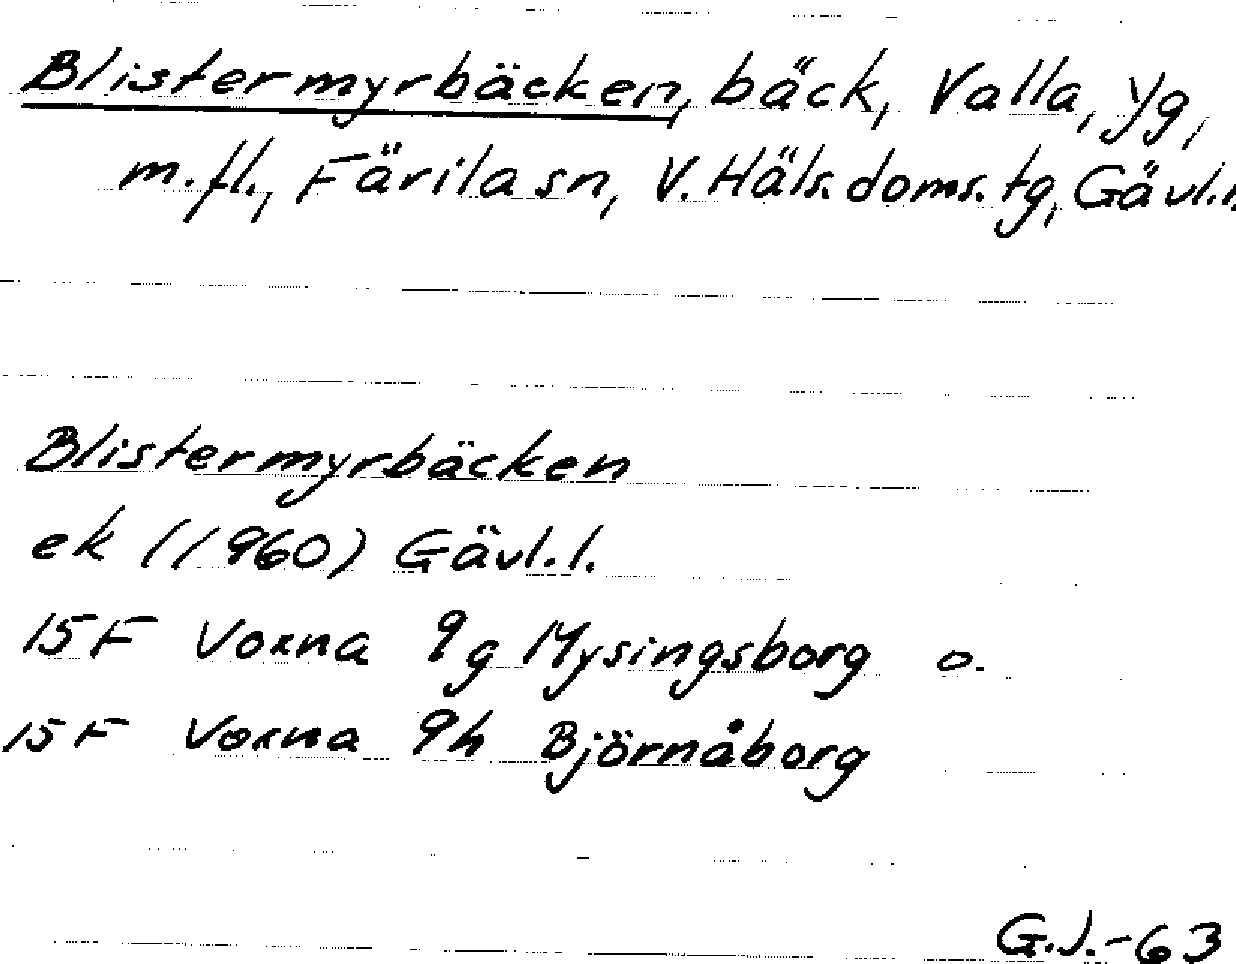 Blistermyrbäcken, bäck, Valla, Yg,
m.fl., Färila sn, V. Häls. doms. tg, Gävl.l.
Blistermyrbäcken
ek (1960) Gävl.l.
15F Voxna 9g Mysingsborg o.
15F Voxna 9h Björnåborg
G.J.-63